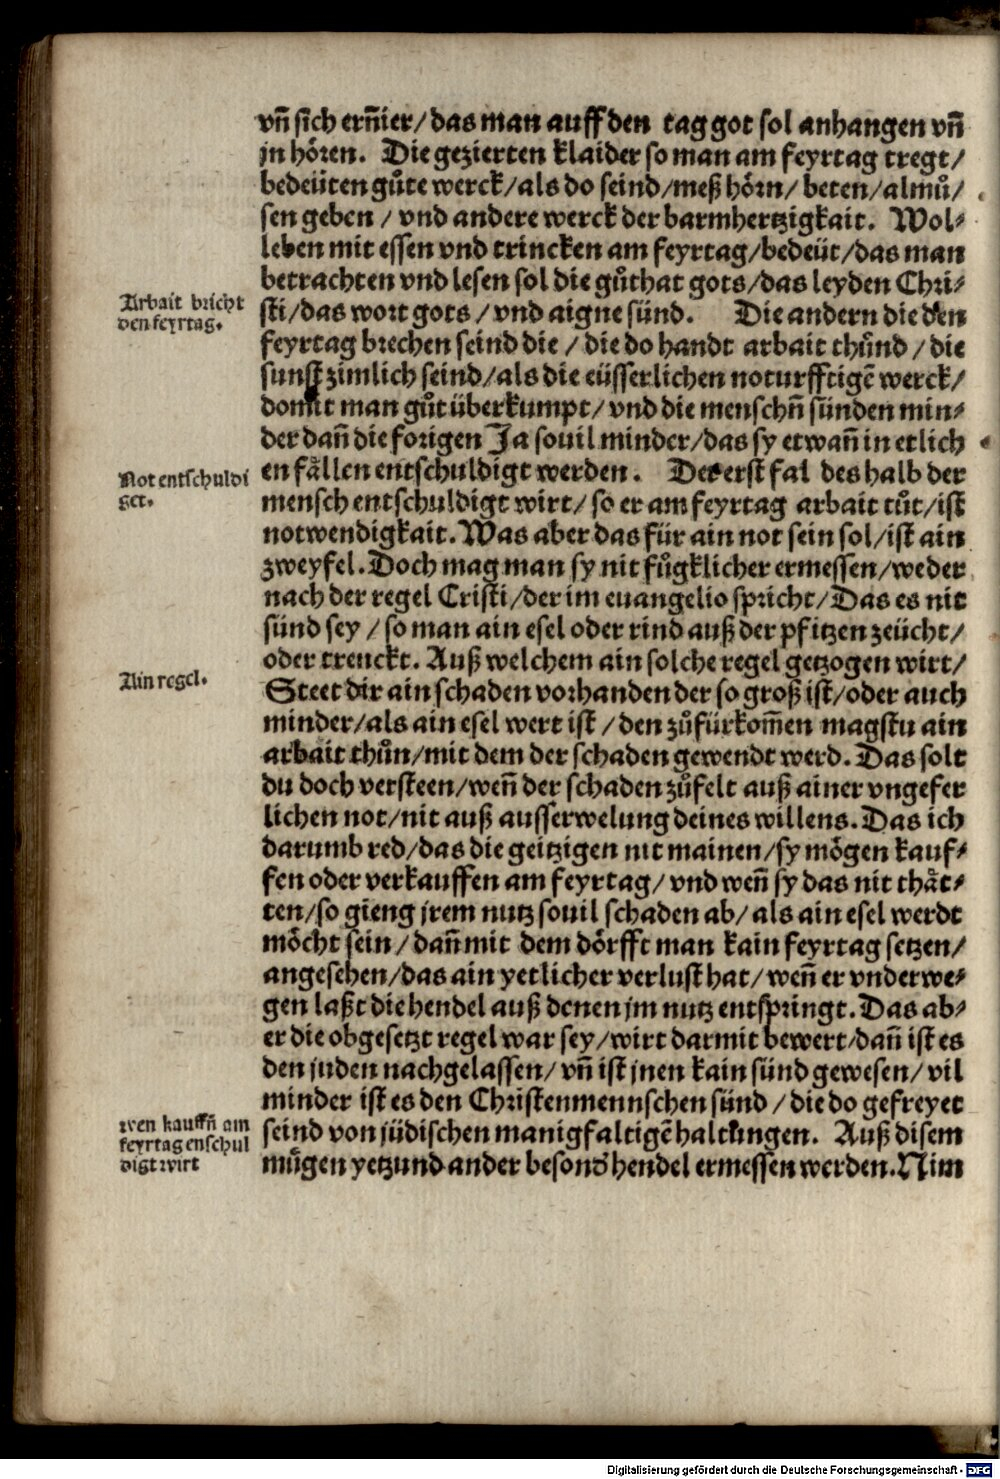 vn̄ sich ern̄ier/das man auff den tag got sol anhangen vn̄
jn hören. Die gezierten klaider so man am feyrtag tregt/
bedeüten gůte werck/als do seind/meß hörn/ beten/almů/
sen geben / vnd andere werck der barmhertzigkait. Wol⸗
leben mit essen vnd trincken am feyrtag/bedeüt/das man
betrachten vnd lesen sol die gůthat gots/das leyden Chri⸗
Arbait bricht
den feyrtag.
sti/das wort gots / vnd aigne sünd. Die andern die den
feyrtag brechen seind die / die do handt arbait thůnd / die
sunst zimlich seind/als die eüsserlichen noturfftigē werck/
domit man gůt überkumpt/ vnd die menschn̄ sünden min⸗
der dan̄ die forigen Ja souil minder/das sy etwan̄ in etlich
Not entschuldi
get.
en fällen entschuldigt werden. Der erst fal des halb der
mensch entschuldigt wirt/ so er am feyrtag arbait tůt/ist
notwendigkait. Was aber das für ain not sein sol/ist ain
zweyfel. Doch mag man sy nit fůgklicher ermessen/weder
nach der regel Cristi/der im euangelio spricht/Das es nit
sünd sey / so man ain esel oder rind auß der pfitzen zeücht/
oder trenckt. Auß welchem ain solche regel getzogen wirt/
Ain regel.
Steet dir ain schaden vorhanden der so groß ist/oder auch
minder/als ain esel wert ist / den zůfürkom̄en magstu ain
arbait thůn/mit dem der schaden gewendt werd. Das solt
du doch versteen/wen̄ der schaden zůfelt auß ainer vngefer
lichen not/nit auß ausserwelung deines willens. Das ich
darumb red/das die geitzigen nit mainen/sy mögen kauf⸗
fen oder verkauffen am feyrtag/ vnd wen̄ sy das nit thät⸗
ten/so gieng jrem nutz souil schaden ab/ als ain esel werdt
möcht sein / dan̄ mit dem dörfft man kain feyrtag setzen/
angesehen/das ain yetlicher verlust hat/ wen̄ er vnderwe⸗
gen laßt die hendel auß denen jm nutz entspringt. Das ab⸗
er die obgesetzt regel war sey/wirt darmit bewert/dan̄ ist es
den juden nachgelassen/ vn̄ ist jnen kain sünd gewesen/ vil
minder ist es den Christenmennschen sünd / die do gefreyet
wen kauffn̄ am
feyrtag enschul
digt wirt
seind von jüdischen manigfaltigē haltungen. Auß disem
mügen yetzund ander besond' hendel ermessen werden. Nim
Digitalisierung gefördert durch die Deutsche Forschungsgemeinschaft - DFG